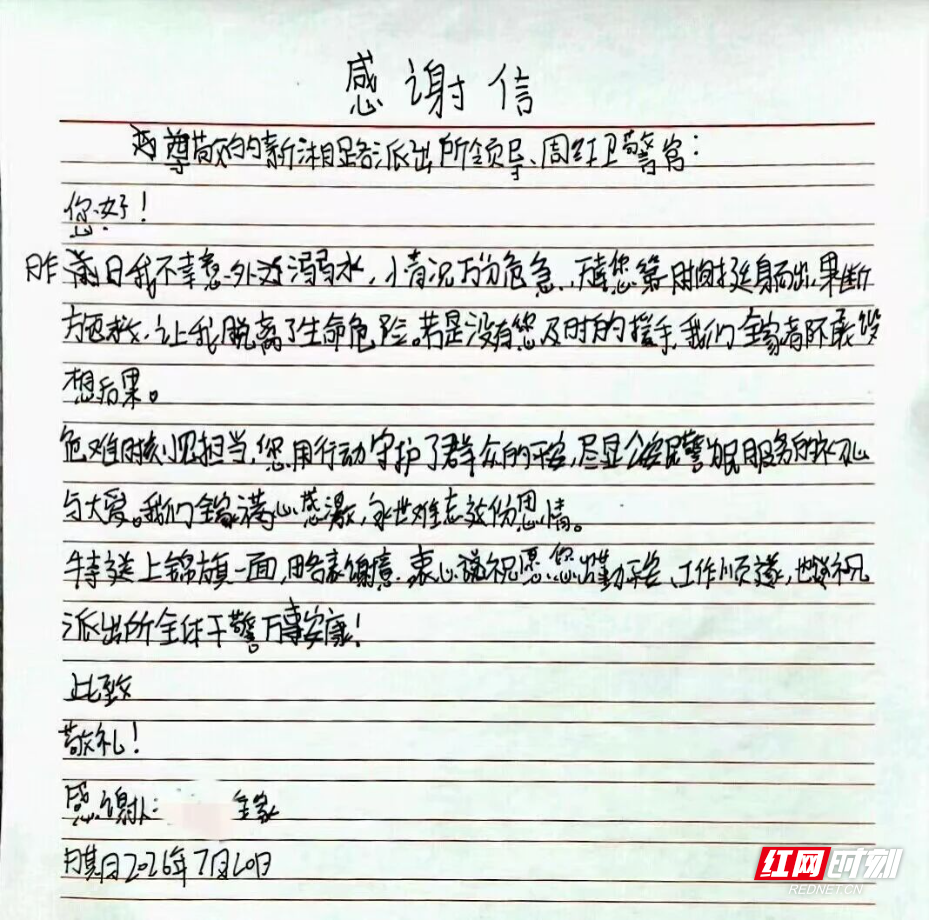 感谢信
尊敬的新湘路派出所领导、周红卫警官：
您好！
昨日我不幸意外溺水，情况万分危急，万幸您第一时间挺身而出，果断
施救，让我脱离了生命危险。若是没有您及时的援手，我们全家都不敢设
想后果。
危难时刻见担当，您用行动守护了群众的平安，尽显公安民警为民服务的初心
与大爱。我们全家满心感激，永世难忘这份恩情。
特送上锦旗一面，略表谢意。衷心祝愿您出勤平安、工作顺遂，也祝
派出所全体干警万事安康！
此致
敬礼！
感谢人： 全家
日期2026年7月20日
红网时刻
REDNET.CN